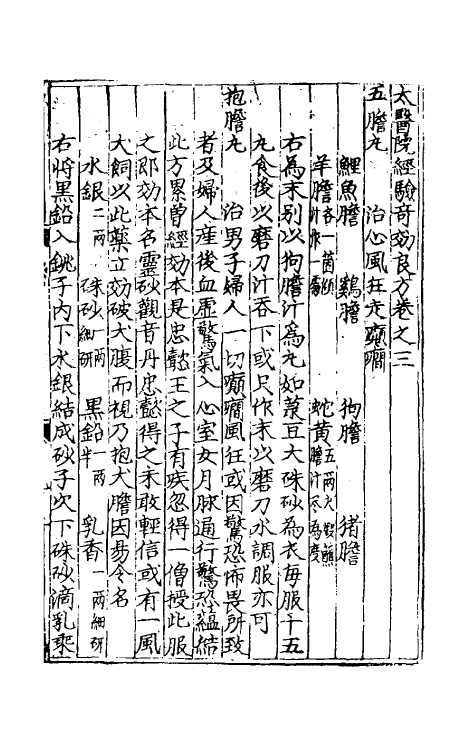 太醫院經驗奇効良方卷之三
五膽丸　治心風狂走癲癇
鯉魚膽　雞膽　狗膽　猪膽
羊膽各一箇傾汁作一處　蛇黃五兩火煅蘸膽汁尽為度
右為末別以狗膽汁為丸如菉豆大硃砂為衣每服十五
丸食後以磨刀汁吞下或只作末以磨刀水調服亦可
抱膽丸　治男子婦人一切癲癇風狂或因驚恐怖畏所致
者及婦人産後血虚驚氣入心室女月脉通行驚恐蘊結
此方累曽經効本是忠懿王之子有疾忽得一僧授此服
之即効本名靈砂觀音丹忠懿得之未敢輕信或有一風
犬飼以此藥立効破犬腹而視乃抱犬膽因易今名
水銀二兩　硃砂一兩細研　黒鉛一兩半　乳香一兩細研
右將黒鉛入銚子内下水銀結成砂子次下硃砂滴乳乘